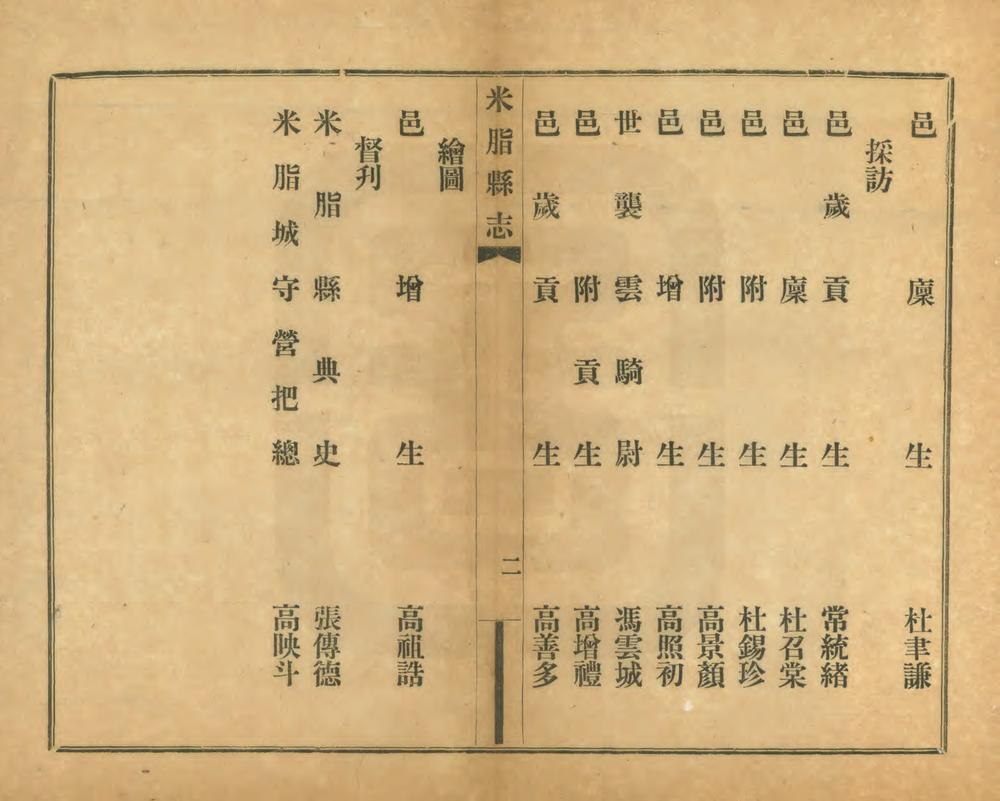 邑廩生杜聿謙
採訪
邑歲貢生常統緒
邑廩生杜召棠
邑附生杜錫珍
邑附生高景顏
邑增生高照初
世襲雲騎尉馮雲城
邑附貢生高增禮
邑歲貢生高善多
米脂縣志
二
繪圖
邑增生高祖誥
督刋
米脂縣典史張傳德
米脂城守營把總高映斗